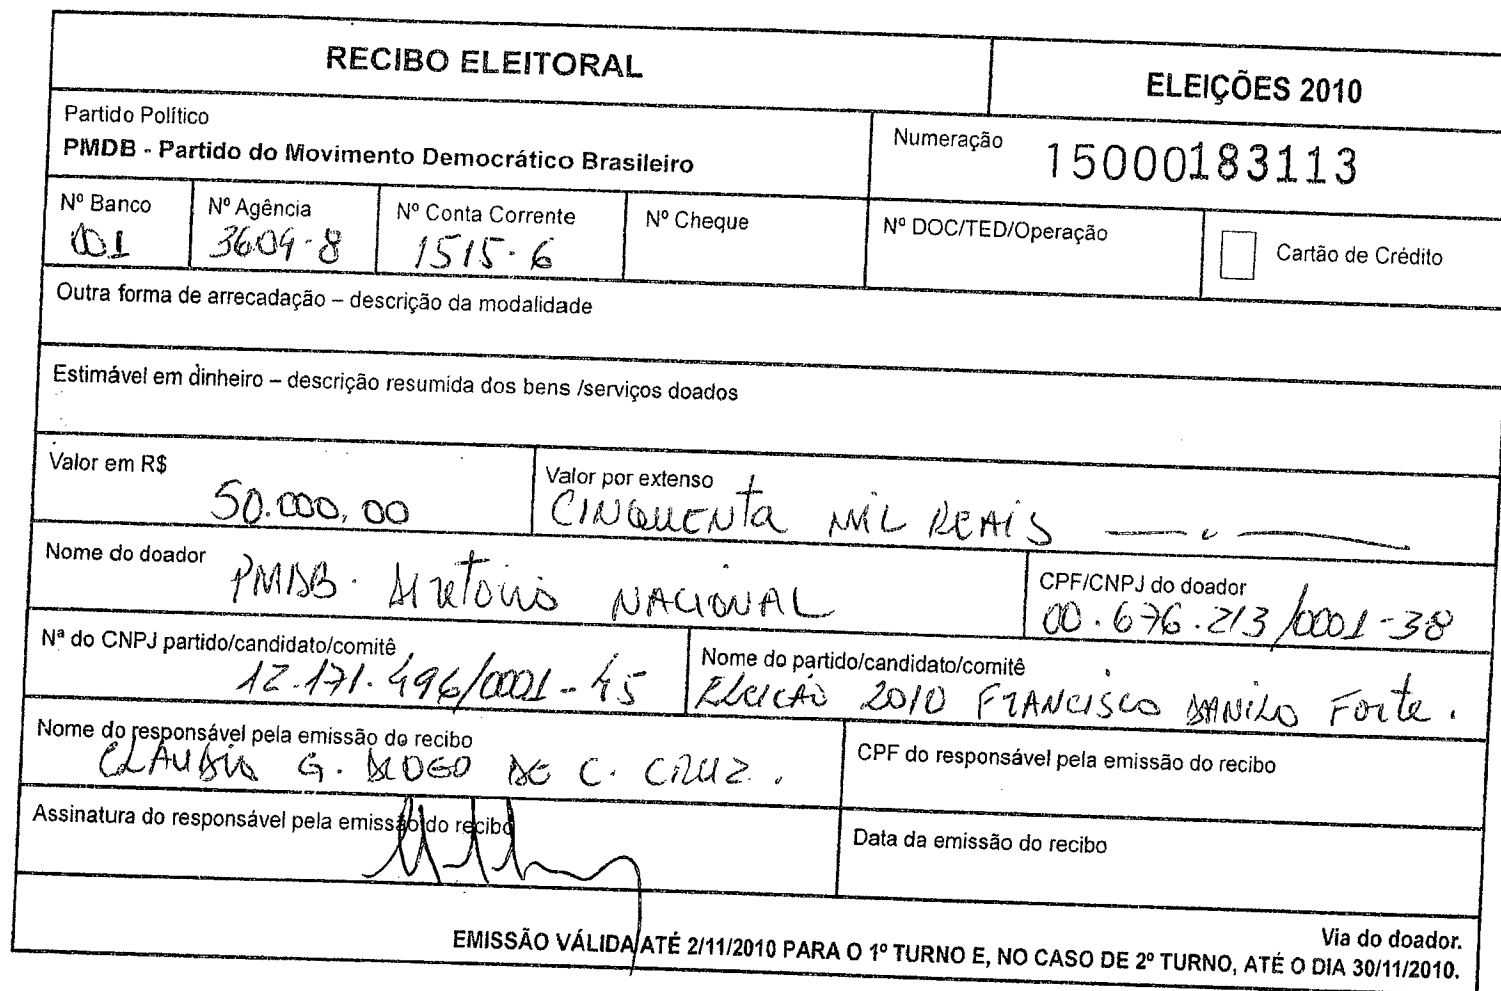 RECIBO ELEITORAL
ELEIÇÕES 2010
Partido Político
PMDB - Partido do Movimento Democrático Brasileiro
Numeração 15000183113
Nº Banco
001
Nº Agência
3609-8
Nº Conta Corrente
1515-6
Nº Cheque
Nº DOC/TED/Operação
Cartão de Crédito
Outra forma de arrecadação – descrição da modalidade
Estimável em dinheiro – descrição resumida dos bens /serviços doados
Valor em R$
50.000,00
Valor por extenso
CINQUENTA MIL REAIS
Nome do doador
PMDB. Diretório NACIONAL
CPF/CNPJ do doador
00.676.213/0001-38
Nª do CNPJ partido/candidato/comitê
12.171.496/0001-45
Nome do partido/candidato/comitê
ELEICAO 2010 FRANCISCO DANILO Forte.
Nome do responsável pela emissão do recibo
G. DIOGO DE C. CRUZ.
CPF do responsável pela emissão do recibo
Assinatura do responsável pela emissão do recibo
Data da emissão do recibo
Via do doador.
EMISSÃO VÁLIDA ATÉ 2/11/2010 PARA O 1º TURNO E, NO CASO DE 2º TURNO, ATÉ O DIA 30/11/2010.